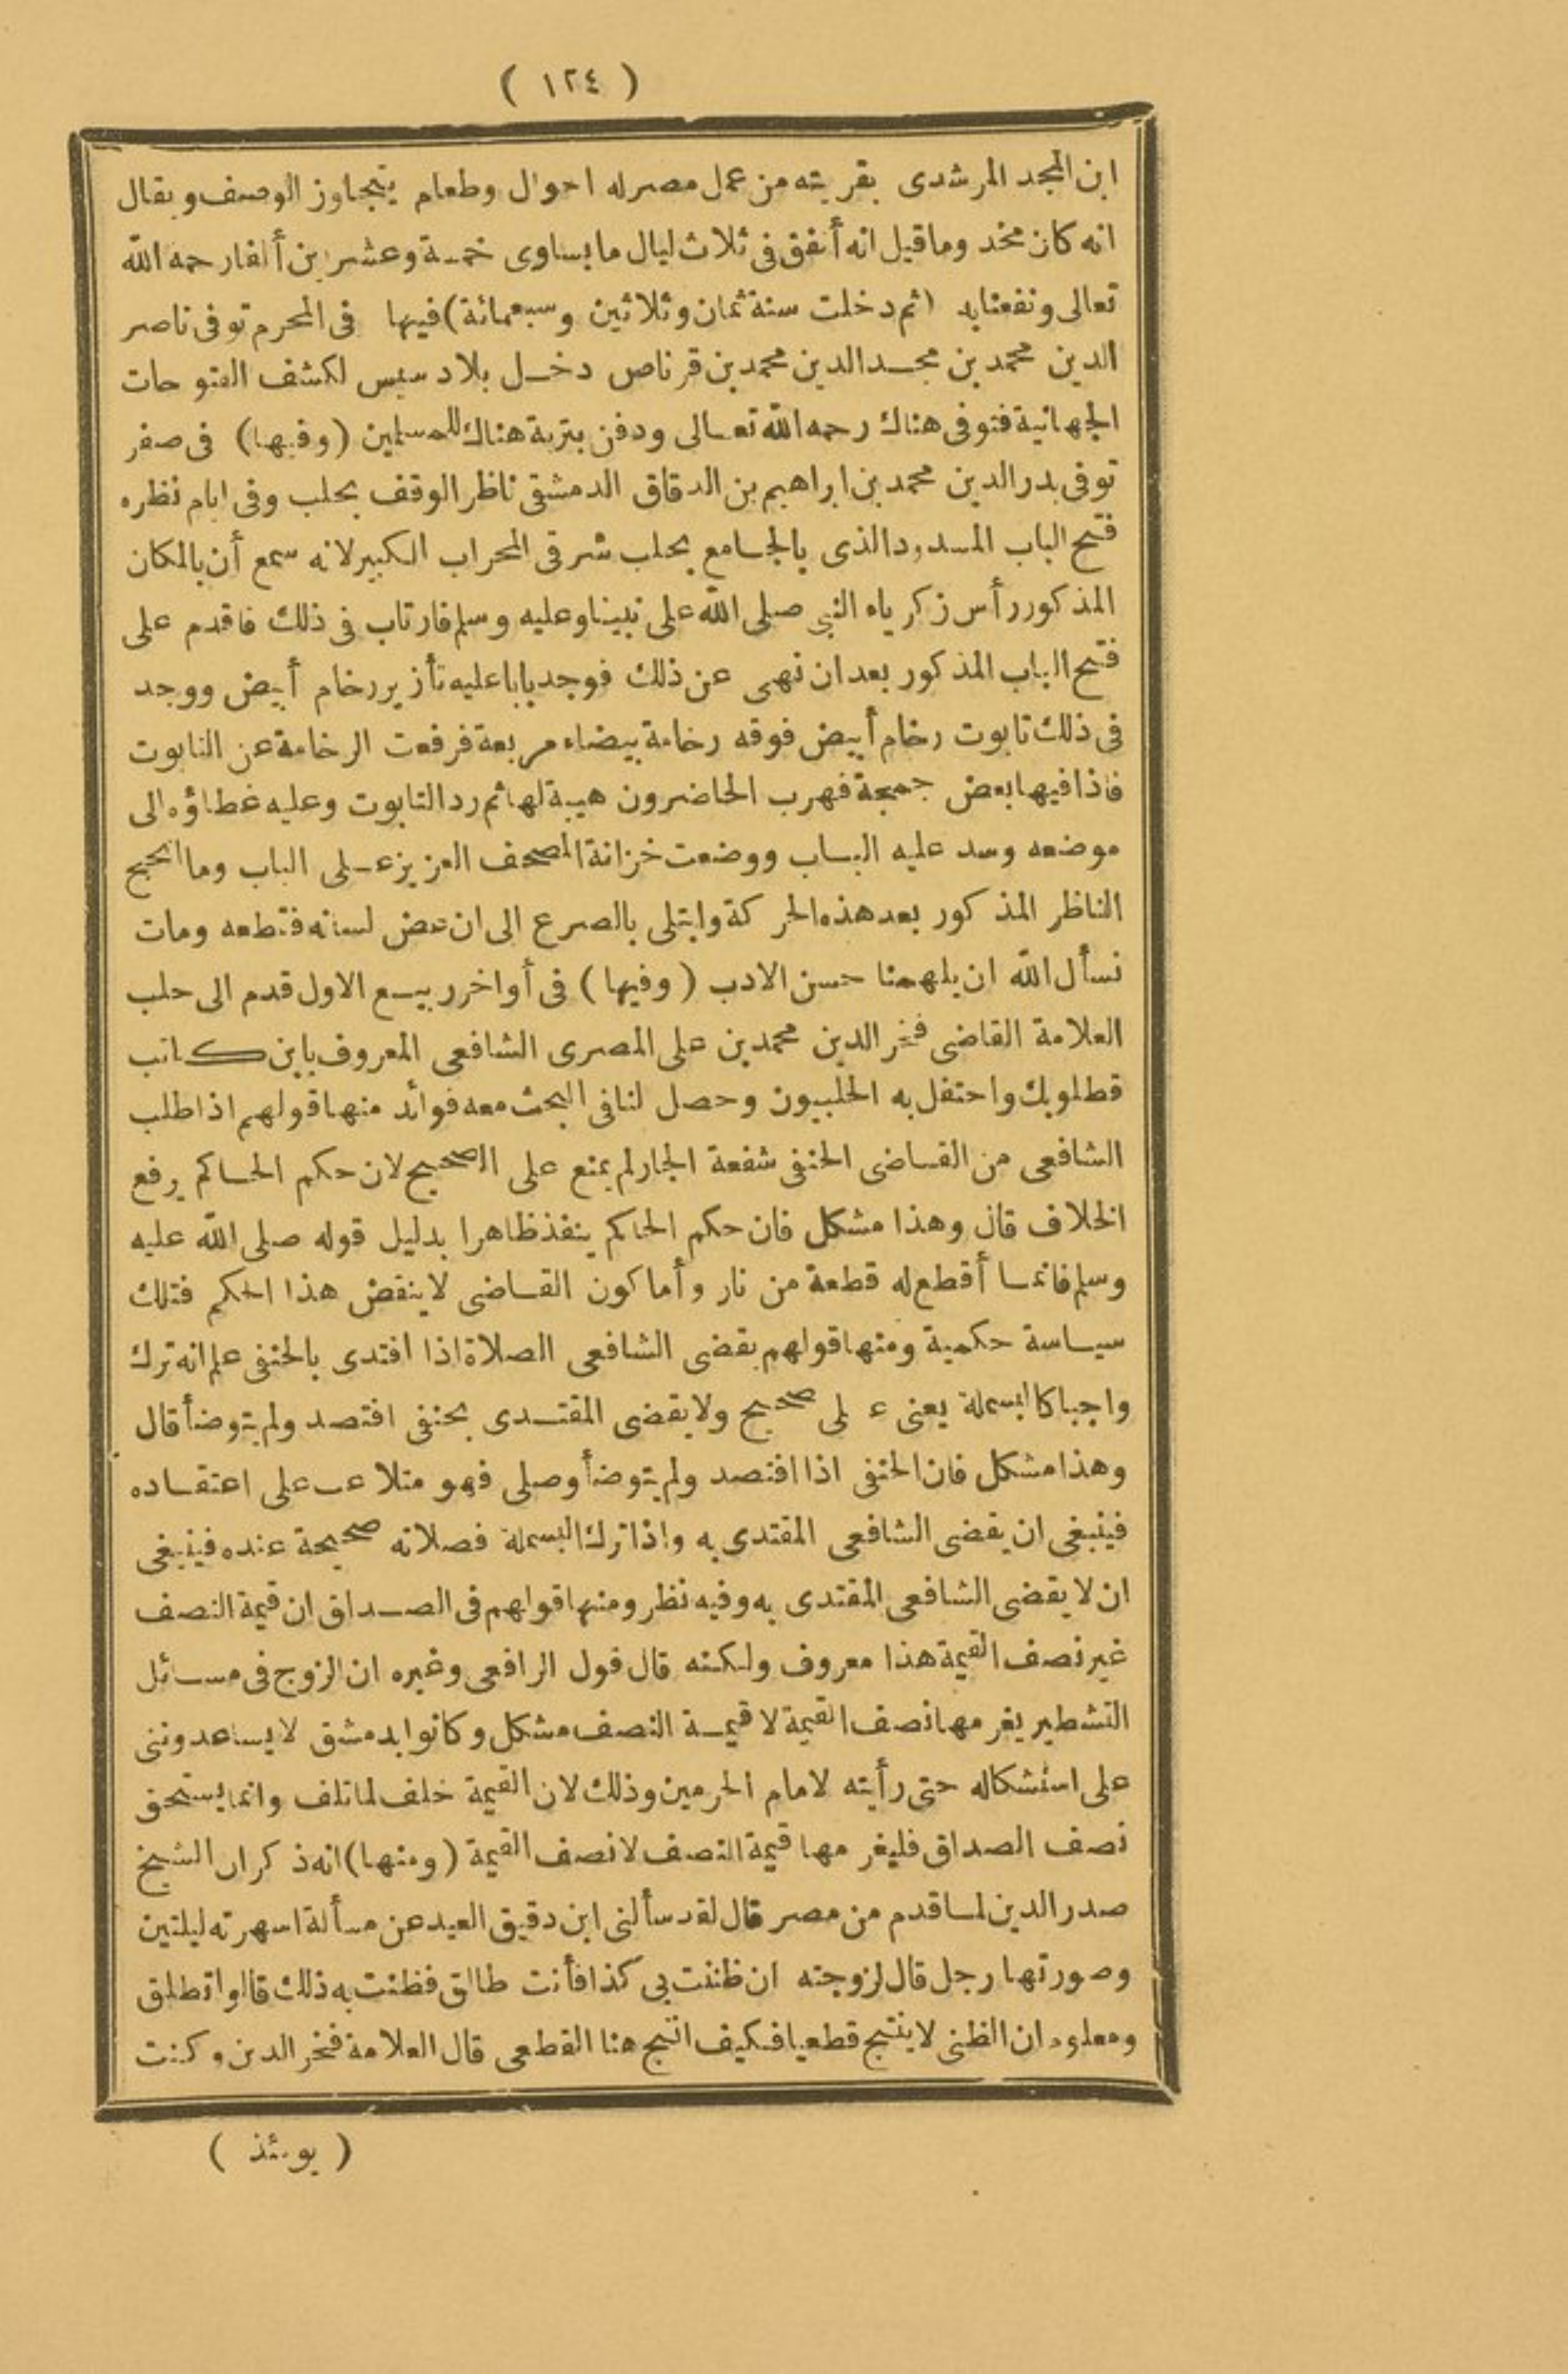 ( ١٢٤ )
ابن المجد المرشدى بقريته من عمل مصر له احوال وطعام يتجاوز الوصف ويقال
انه كان مخد وما قيل انه أنفق فى ثلاث ليال ما يساوى خمسة وعشرين ألفا رحمه الله
تعالى ونفعنا به (ثم دخلت سنة ثمان وثلاثين وسبعمائة) فيها فى المحرم توفى ناصر
الدين محمد بن مجد الدين محمد بن قرناص دخل بلاد سيس لكشف الفتوحات
الجهانية فتوفى هناك رحمه الله تعالى ودفن بتربة هناك للمسلمين (وفيها) فى صفر
توفى بدر الدين محمد بن ابراهيم بن الدقاق الدمشقى ناظر الوقف بحلب وفى ايام نظره
فتح الباب المسدود الذى بالجامع بحلب شرقى المحراب الكبير لانه سمع أن بالمكان
المذكور رأس زكرياه النبى صلى الله على نبينا وعليه وسلم فارتاب فى ذلك فاقدم على
فتح الباب المذكور بعد ان نهى عن ذلك فوجد بابا عليه تأزير رخام أبيض ووجد
فى ذلك تابوت رخام أبيض فوقه رخامة بيضاء مربعة فرفعت الرخامة عن التابوت
فاذا فيها بعض جمجمة فهرب الحاضرون هيبة لها ثم رد التابوت وعليه غطاؤه الى
موضعه وسد عليه الباب ووضعت خزانة المصحف العزيز على الباب وما انجح
الناظر المذكور بعد هذه الحركة وابتلى بالصرع الى ان عض لسانه فقطعه ومات
نسأل الله ان يلهمنا حسن الادب (وفيها) فى أواخر ربيع الاول قدم الى حلب
العلامة القاضى فخر الدين محمد بن على المصرى الشافعى المعروف بابن كاتب
قطلوبك واحتفل به الحلبيون وحصل لنا فى البحث معه فوائد منها قولهم اذا طلب
الشافعى من القاضى الحنفى شفعة الجار لم يمنع على الصحيح لان حكم الحاكم يرفع
الخلاف قال وهذا مشكل فان حكم الحاكم ينفذ ظاهرا بدليل قوله صلى الله عليه
وسلم فانما أقطع له قطعة من نار وأما كون القاضى لا ينقض هذا الحكم فتلك
سياسة حكمية ومنها قولهم يقضى الشافعى الصلاة اذا اقتدى بالحنفى علم انه ترك
واجبا كالبسملة يعنى على صحيح ولا يقضى المقتدى بحنفى افتصد ولم يتوضأ قال
وهذا مشكل فان الحنفى اذا افتصد ولم يتوضأ وصلى فهو متلاعب على اعتقاده
فينبغى ان يقضى الشافعى المقتدى به واذا ترك البسملة فصلاته صحيحة عنده فينبغى
ان لا يقضى الشافعى المقتدى به وفيه نظر ومنها قولهم فى الصداق ان قيمة النصف
غير نصف القيمة هذا معروف ولكنه قال قول الرافعى وغيره ان الزوج فى مسائل
التشطير يغرمها نصف القيمة لا قيمة النصف مشكل وكانوا بدمشق لا يساعدوننى
على استشكاله حتى رأيته لامام الحرمين وذلك لان القيمة خلف لما تلف وانما يستحق
نصف الصداق فليغرمها قيمة النصف لا نصف القيمة (ومنها) انه ذكر ان الشيخ
صدر الدين لما قدم من مصر قال لقد سألنى ابن دقيق العيد عن مسألة اسهرته ليلتين
وصورتها رجل قال لزوجته ان ظننت بى كذا فأنت طالق فظنت به ذلك قالوا تطلق
ومعلوم ان الظنى لا ينتج قطعيا فكيف انتج هنا القطعى قال العلامة فخر الدين وكنت
( يومئذ )